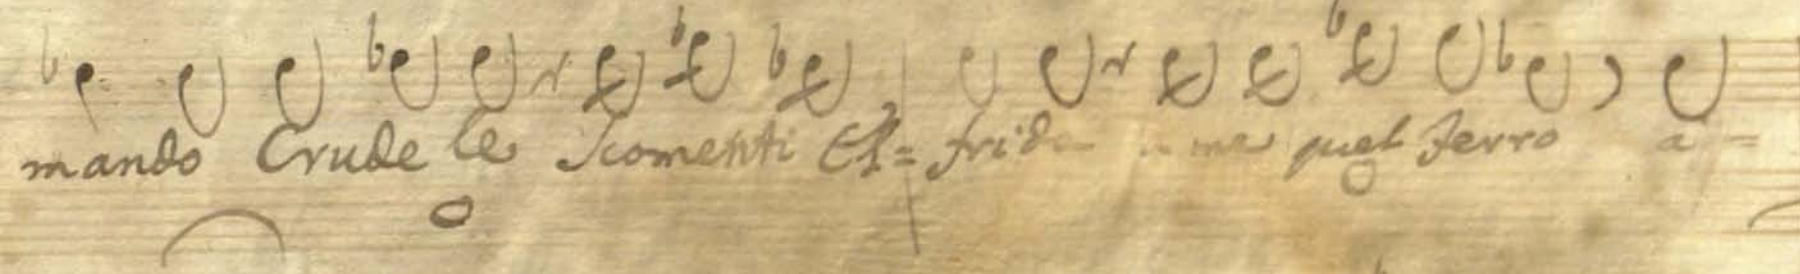 mando Crudele Scomenti El= frida a me quel ferro a =